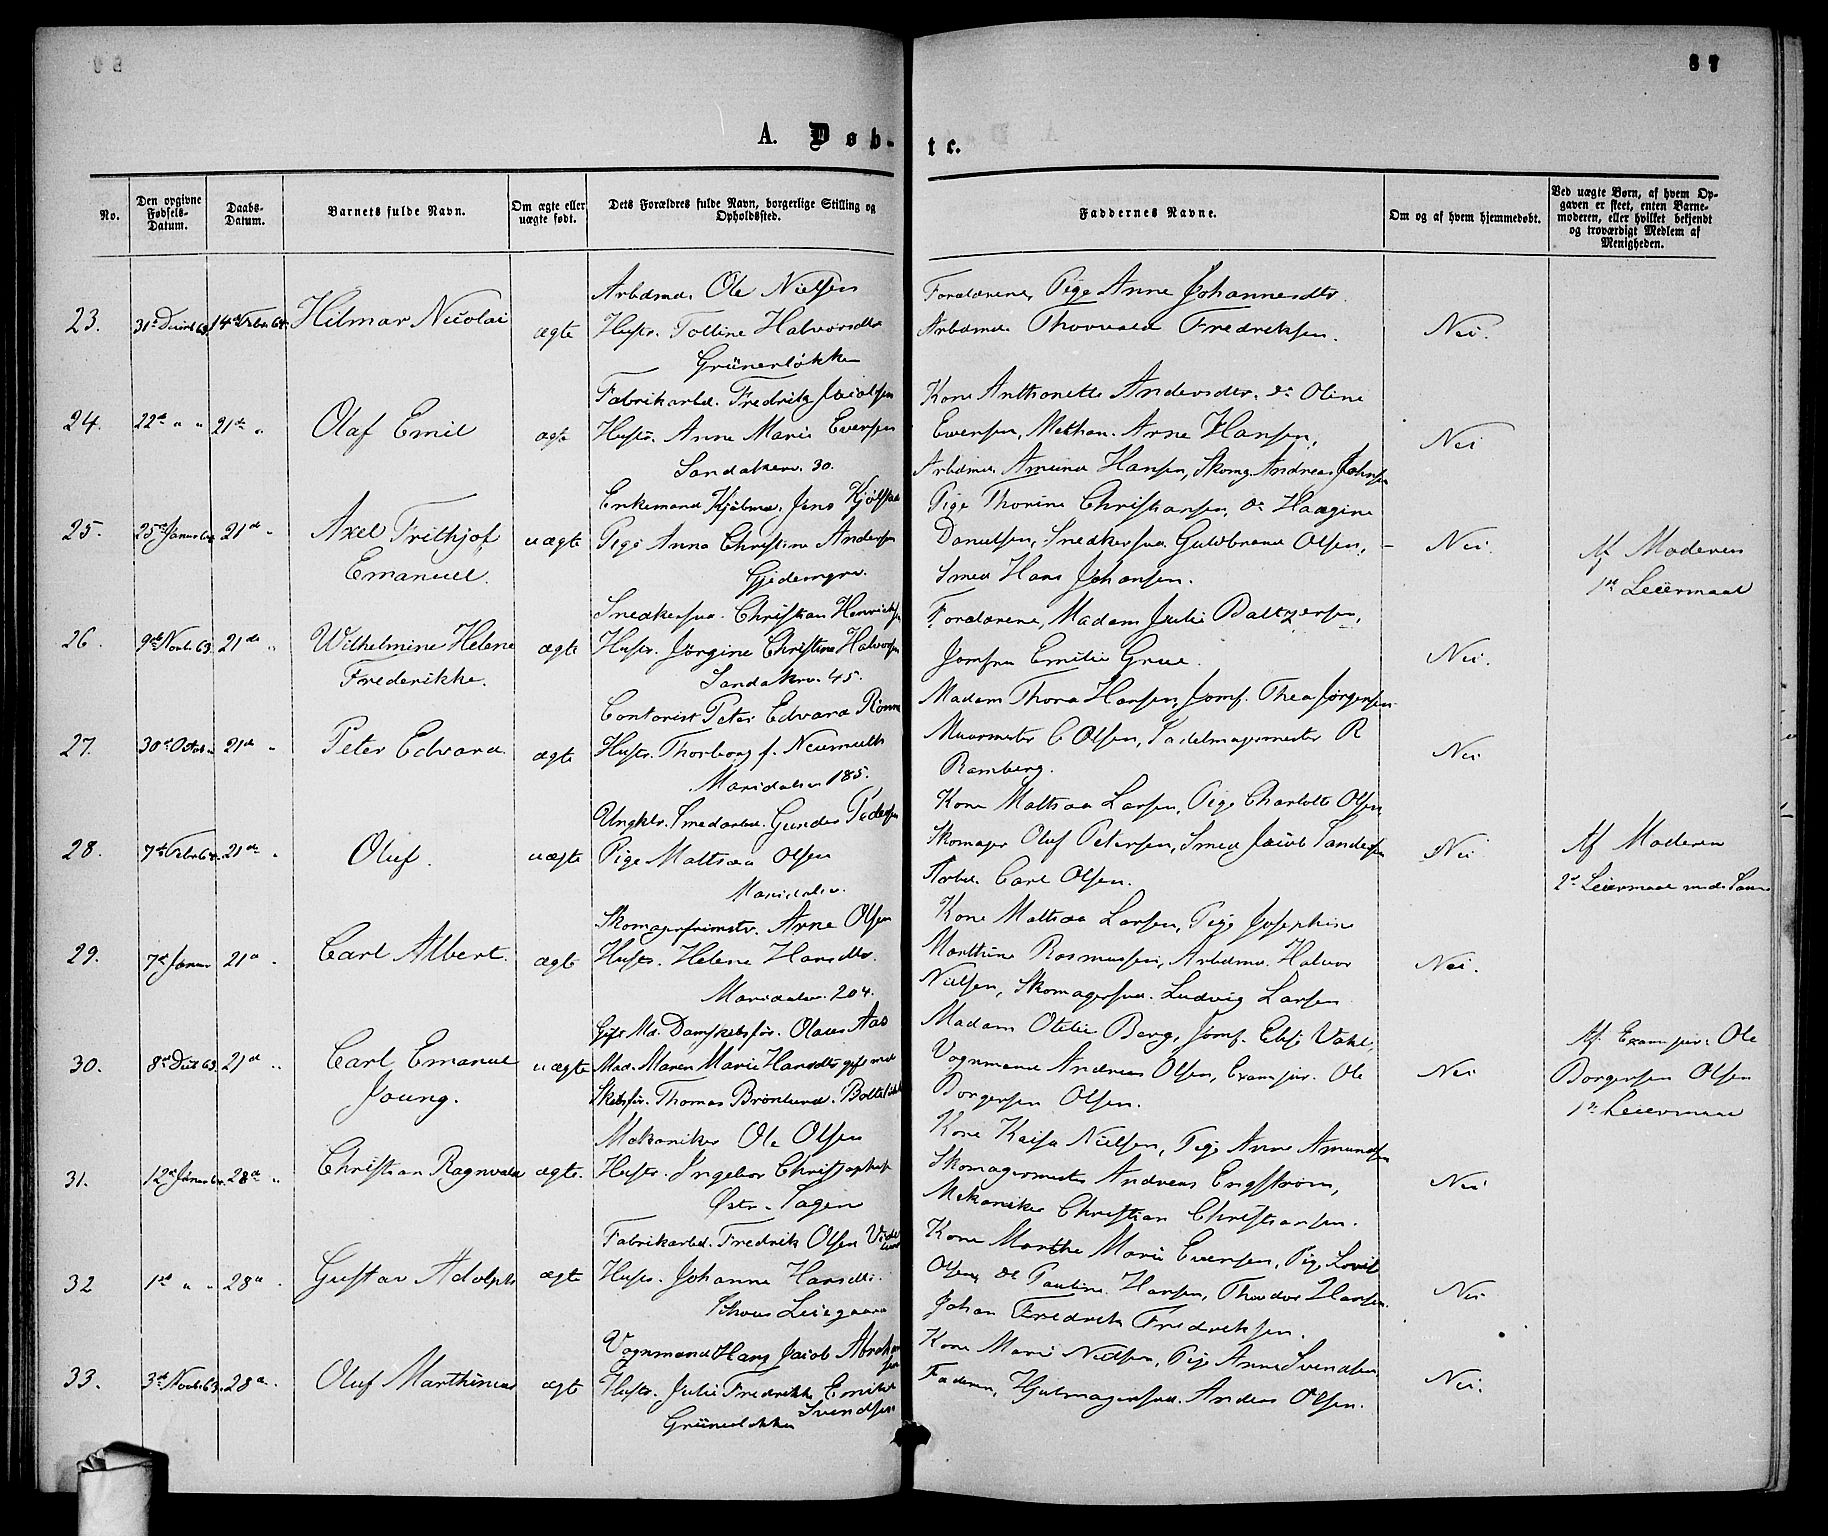 87
A. Døb-
te.
No.
Den opgivne Fødsels-Datum.
Daabs-Datum.
Barnets fulde Navn.
Om ægte eller uægte født.
Dets Forældres fulde Navn, borgerlige Stilling og Opholdssted.
Faddernes Navne.
Om og af hvem hjemmedøbt.
Ved uægte Børn, af hvem Opgaven er skeet, enten Barnemoderen, eller hvilket bekjendt og troværdigt Medlem af Menigheden.
Arbdmd. Ole Nielsen
Forældrene, Pige Anne Johannesdtr.
23. 14de Febr 64. Hilmar Nicolai ægte Hustr. Tolline Halvorsdtr
Arbdmd. Thorvald Fredriksen. Nei.
Grünerløkken
Fabrikarbd. Fredrik Jacobsen
Kone Anthonette Andersdtr. do Oline
24. 22de " " 21de " Olaf Emil ægte Hustr. Anne Marie Evensen
Evensen, Mekhan. Arne Hansen, Nei
Sandakerv. 30.
Arbdmd. Amund Hansen, Skomg. Andreas Johnsen
Enkemand Kjølmd. Jens
Pige Thorine Christiansen, do Haagine
25. 25de Januar 64 21de " Axel Frithjof uægte Pige Anna Christine Andersen
Danielsen, Snedkersvd. Guldbrand Olsen, Nei. Af Moderen
Emanuel. Gjedemyrv.
Smed Hans Johansen. 1ste Leiermaal
Snedkersvd. Christian Henriksen
Forældrene, Madam Julie Baltzersen,
26. 9de Novbr 63. 21de " Wilhelmine Helene ægte Hustr. Jørgine Christine Halvorsen
Jomfru Emilie Grue. Nei.
Frederikke. Sandakerv. 45.
Madam Thora Hansen, Jomf. Thea Jørgensen
Contorist Peter Edvard Rønne
27. 30te Octob " 21de " Peter Edvard ægte Hustr. Thorborg f. Neumuth
Muurmester C Olsen, Sadelmagermester R Nei
Maridalsv 185.
Ramberg.
Kone Mathea Larsen, Pige Charlotte Olsen,
Ungkr. Smedarbd. Gunder Pedersen
28. 7de Febr 64. 21de " Oluf. uægte Pige Mathea Olsen
Skomager Oluf Petersen, Smed Jacob Sandersen Nei Af Moderen
Maridalsv.
Arbd. Carl Olsen. 2det Leiermaal med Samme
Skomagersvd. Arne Olsen
Kone Mathea Larsen, Pige Josephine
29. 7de Januar 21de " Carl Albert. ægte Hustr. Helene Hansdtr.
Marthine Rasmussen, Arbdmd. Halvor Nei.
Maridalsv. 204.
Nielsen, Skomagersvd. Ludvig Larsen
Gift Md. Dampskibsfør. Olaus Aas
Madam Otilie Berg, Jomf. Elise Vahl,
Af Exam jur. Ole
30. 8de Decb 63. 21de " Carl Emanuel uægte Mad. Maren Marie Hansdtr gift med
Vognmand Andreas Olsen, Exam jur. Ole Nei Borgersen Olsen
Joung. Skibsfør. Thomas Brønlund.
Borgersen Olsen. 1ste Leiermaal
Mekaniker Ole Olsen
Kone Kaisa Nielsen, Pige Anne Amundsen
31. 12te Januar 64. 28de " Christian Ragnvald ægte. Hustr. Ingebor Christophsen
Skomagermester Andreas Engstrøm, Nei
Østr. Sagen
Mekaniker Christian Christiansen.
Fabrikarbd. Fredrik Olsen
Kone Marthe Marie Evensen, Pige Lovise
32 1ste " " 28de " Gustav Adolph ægte Hustr. Johanne Hansdtr.
Olsen, do Pauline Hansen, Theodor Hansen. Nei
Schous Leiegaard
Johan Fredrik Fredriksen.
Vognmand Hans Jacob Abrahamsen
Kone Marie Nielsen, Pige Anne Svendsen,
33. 3die Novbr 63. 28de Oluf Marthinius ægte Hustr. Julie Fredrikke Emilie
Faderen, Hjulmagersvd. Anders Olsen. Nei.
Svendsen
Grünerløkken